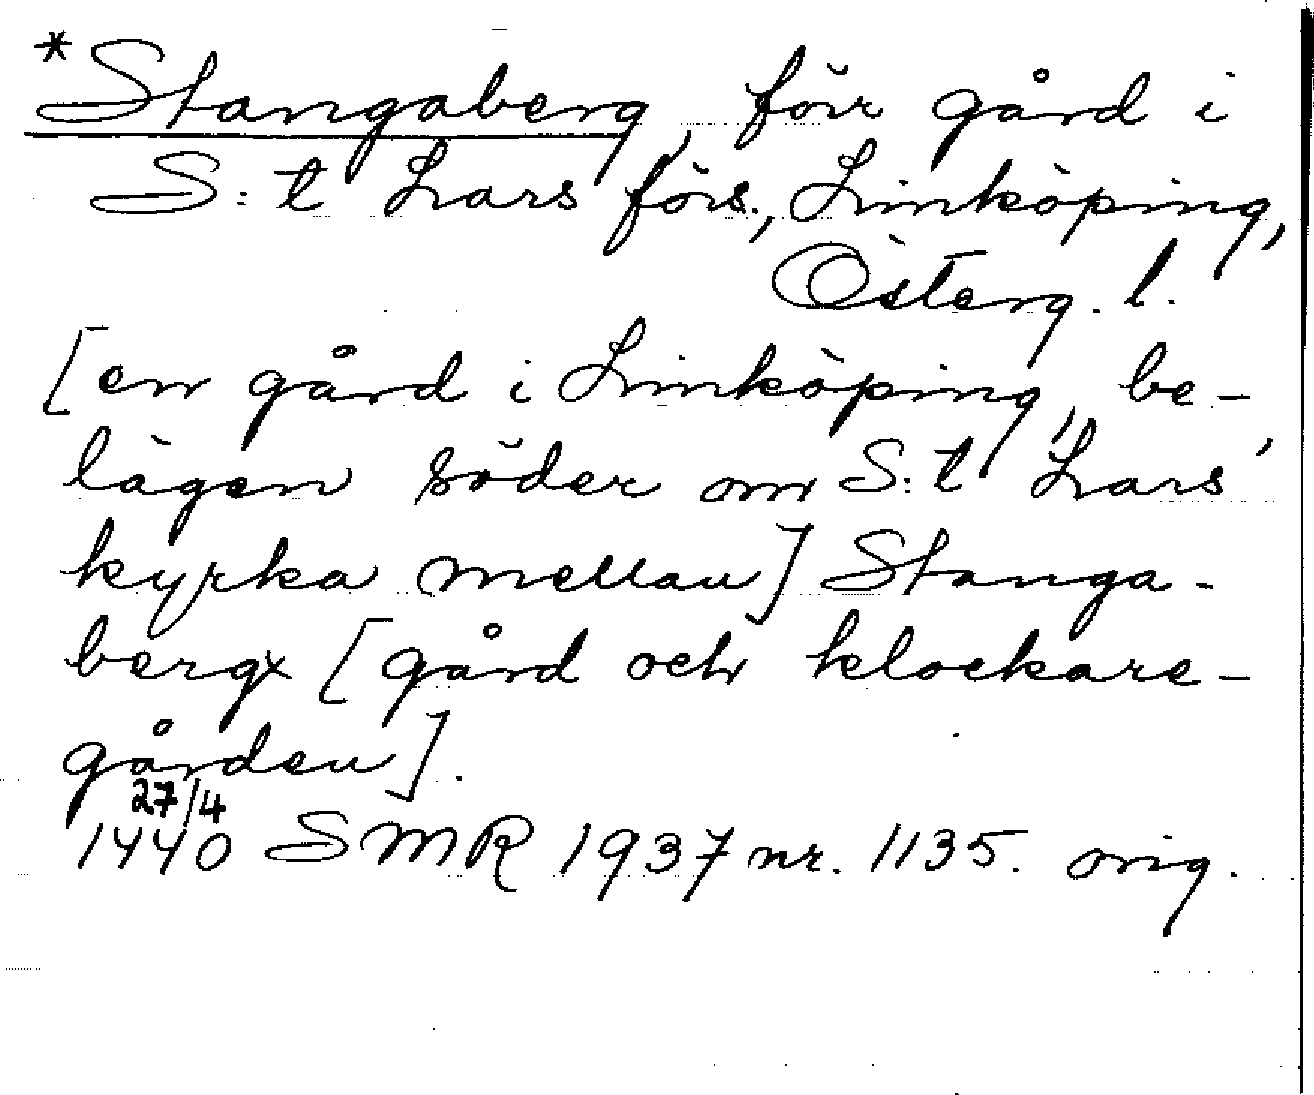 *Stangaberg, förr gård i
S:t Lars förs., Linköping,
Österg. l.
[en gård i Linköping, be-
lägen söder om S:t Lars'
kyrka mellan] Stanga-
bergx [gård och klockare-
gården].
27/4
1440 SMR 1937 nr. 1135. orig.